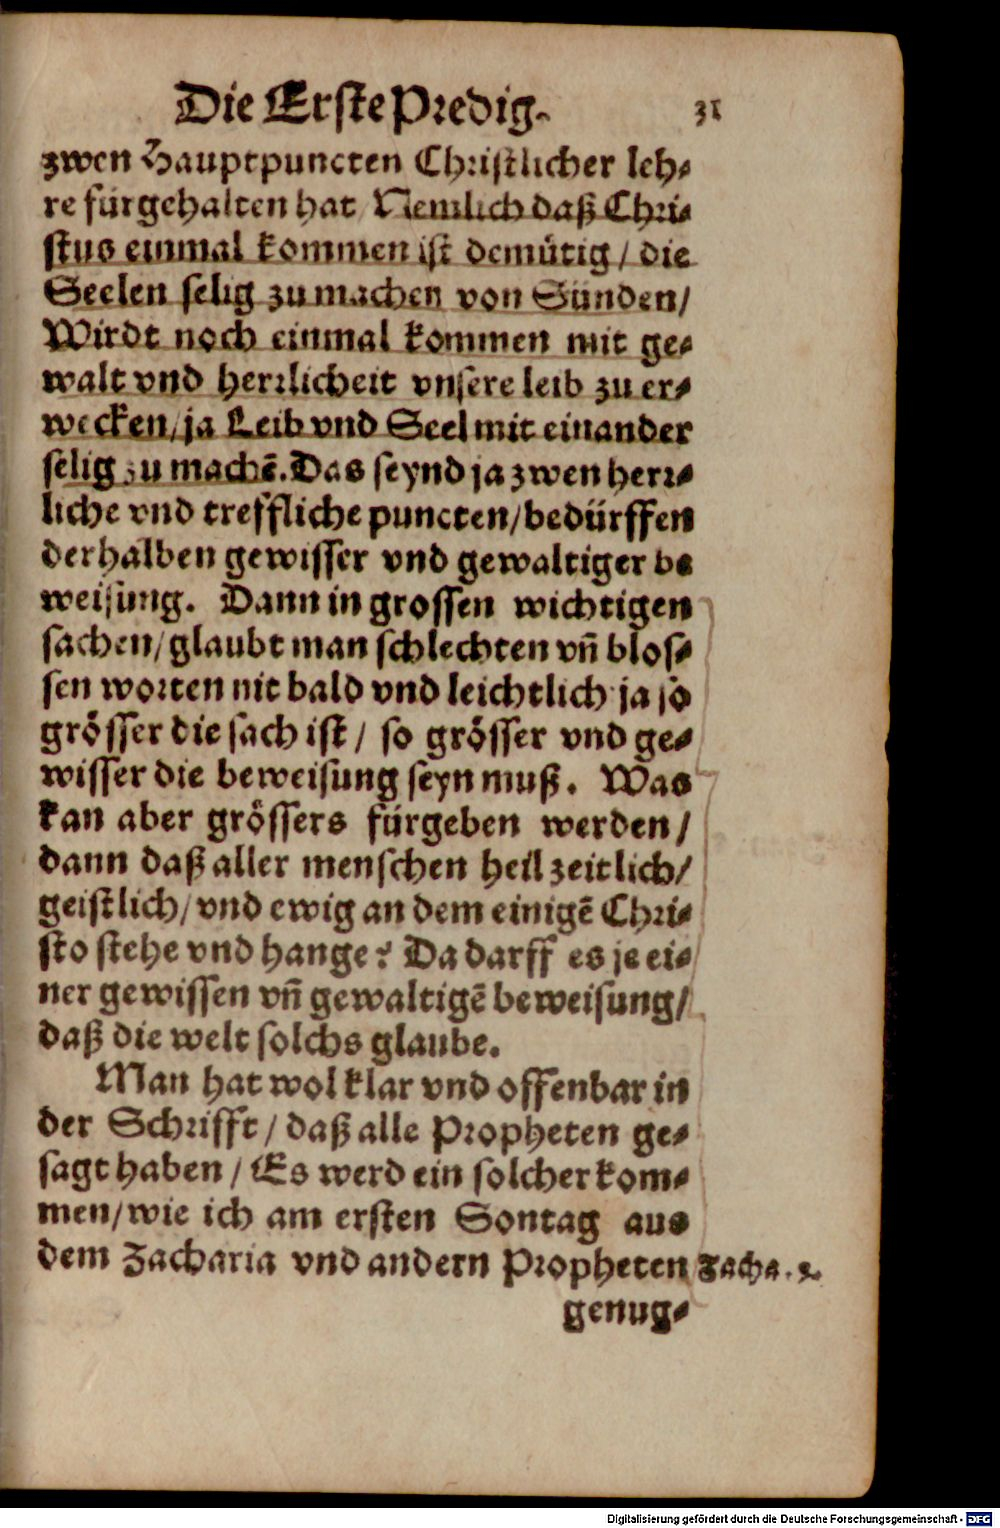 Die Erste Predig. 31
zwen Hauptpuncten Christlicher leh-
re fürgehalten hat / Nemlich daß Chri-
stus einmal kommen ist demütig / die
Seelen selig zu machen von Sünden /
Wirdt noch einmal kommen mit ge-
walt vnd herrlicheit vnsere leib zu er-
wecken / ja Leib vnd Seel mit einander
selig zu machẽ. Das seynd ja zwen herr-
liche vnd treffliche puncten / bedürffen
derhalben gewisser vnd gewaltiger be
weisung. Dann in grossen wichtigen
sachen / glaubt man schlechten vñ blos-
sen worten nit bald vnd leichtlich ja so
grösser die sach ist / so grösser vnd ge-
wisser die beweisung seyn muß. Was
kan aber grössers fürgeben werden /
dann daß aller menschen heil zeitlich /
geistlich / vnd ewig an dem einigẽ Chri-
sto stehe vnd hange? Da darff es je ei-
ner gewissen vñ gewaltigẽ beweisung /
daß die welt solchs glaube.
Man hat wol klar vnd offenbar in
der Schrifft / daß alle Propheten ge-
sagt haben / Es werd ein solcher kom-
men / wie ich am ersten Sontag aus
dem Zacharia vnd andern Propheten Zacha. 9.
genug-
Digitalisierung gefördert durch die Deutsche Forschungsgemeinschaft - DFG